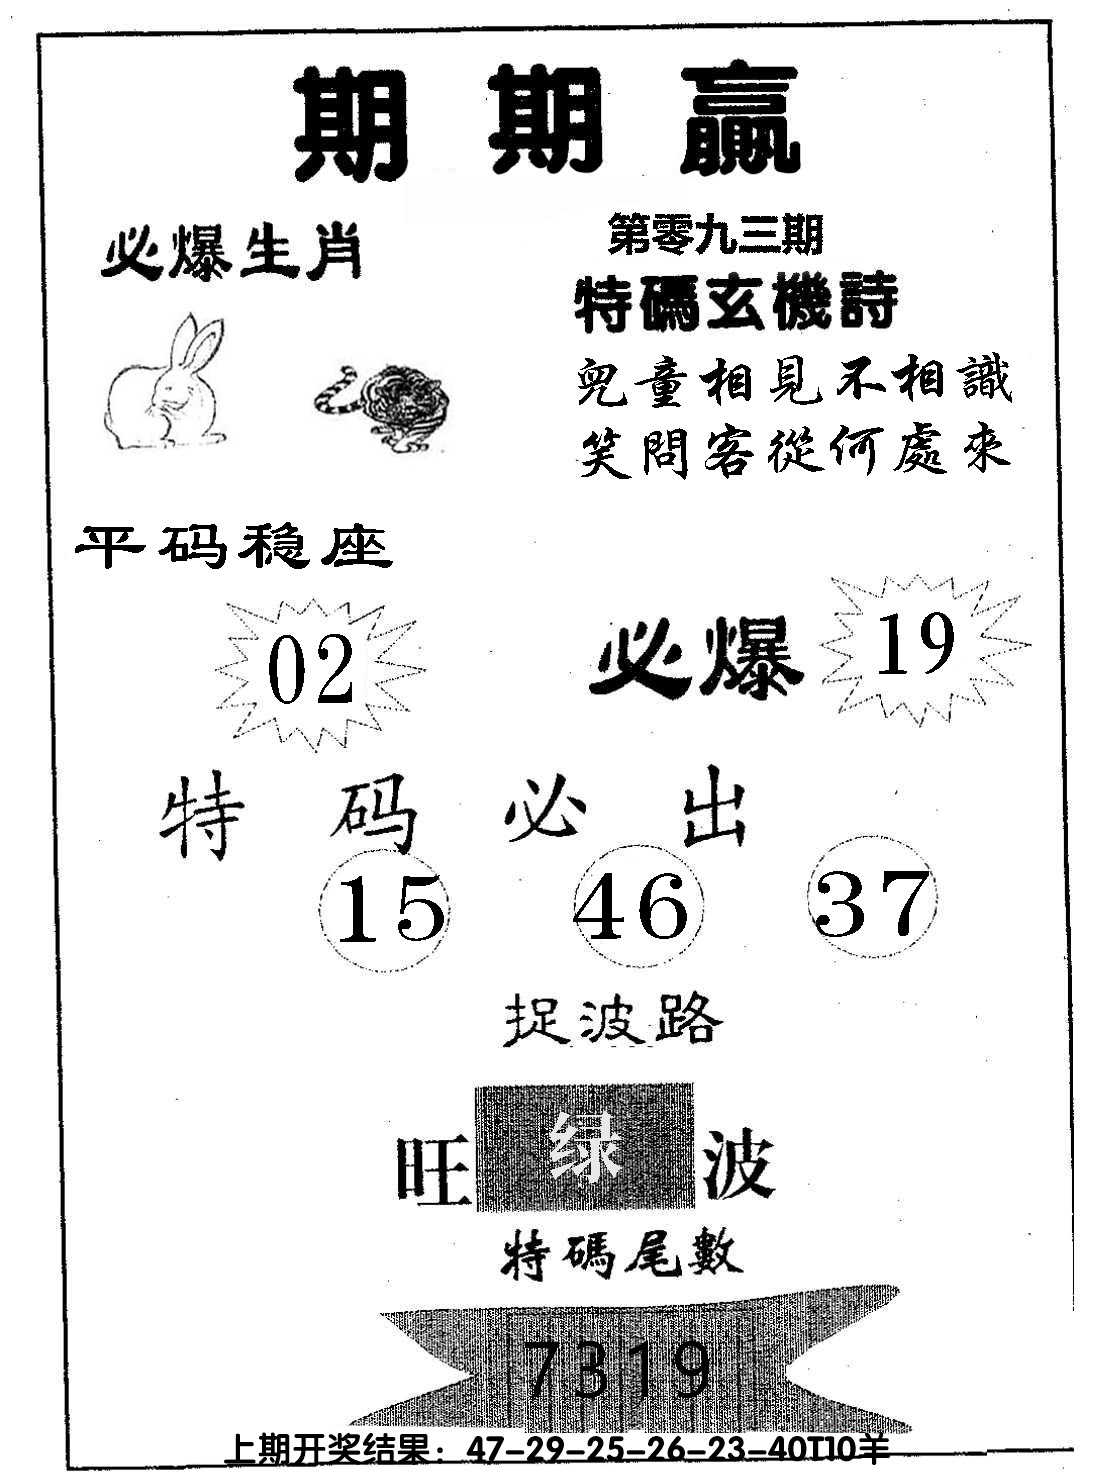 期期赢
必爆生肖
第零九三期
特碼玄機詩
兒童相見不相識
笑問客從何處來
平码稳座
02
必爆 19
特码必出
15 46 37
捉波路
旺 绿 波
特碼尾數
7319
上期开奖结果：47-29-25-26-23-40T10羊